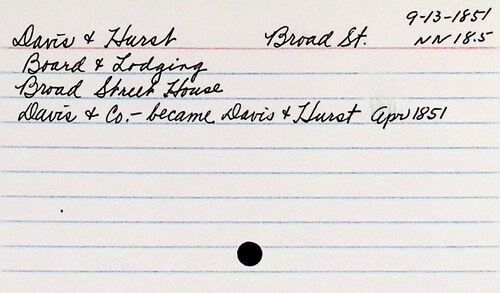 9-13-1851
Davis & Hurst Broad St. NN 18.5
Board & Lodging
Broad Street House
Davis & Co. - became Davis & Hurst Apr 1851